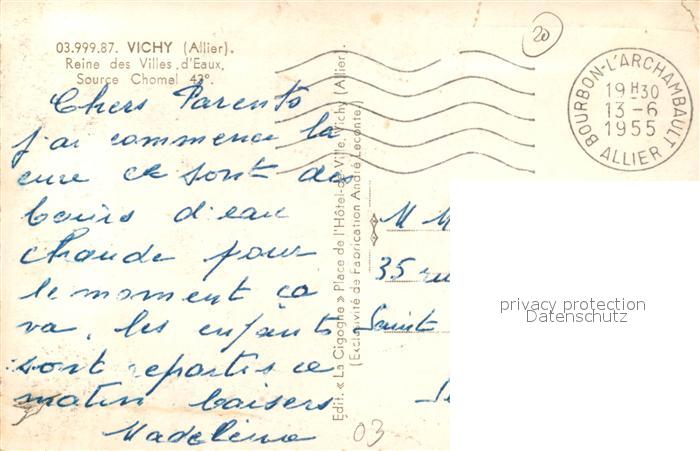 03.999.87. VICHY (Allier).
Reine des Villes d'Eaux.
Source Chomel 43°.
Chers Parents
j'ai commence la
cure ce sont des
bains d'eau
chaude pour
le moment ça
va, les enfants
sont repartis ce
matin baisers
Madeleine
Edit. « La Cigogne » Place de l'Hôtel-de-Ville, Vichy (Allier).
(Exclusivité de Fabrication André Leconte)
20
BOURBON-L'ARCHAMBAULT
19H30
13-6
1955
ALLIER
M M
35 ru
Saint
03
privacy protection
Datenschutz